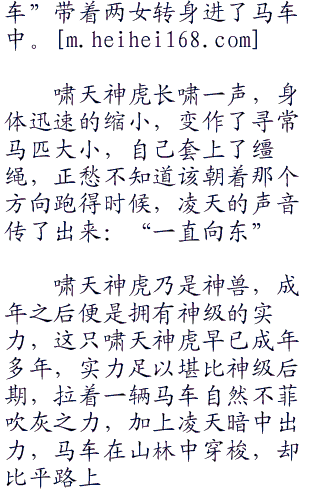 车”带着两女转身进了马车
中。[m.heihei168.com]
啸天神虎长啸一声，身
体迅速的缩小，变作了寻常
马匹大小，自己套上了缰
绳，正愁不知道该朝着那个
方向跑得时候，凌天的声音
传了出来：“一直向东”
啸天神虎乃是神兽，成
年之后便是拥有神级的实
力，这只啸天神虎早已成年
多年，实力足以堪比神级后
期，拉着一辆马车自然不菲
吹灰之力，加上凌天暗中出
力，马车在山林中穿梭，却
比平路上